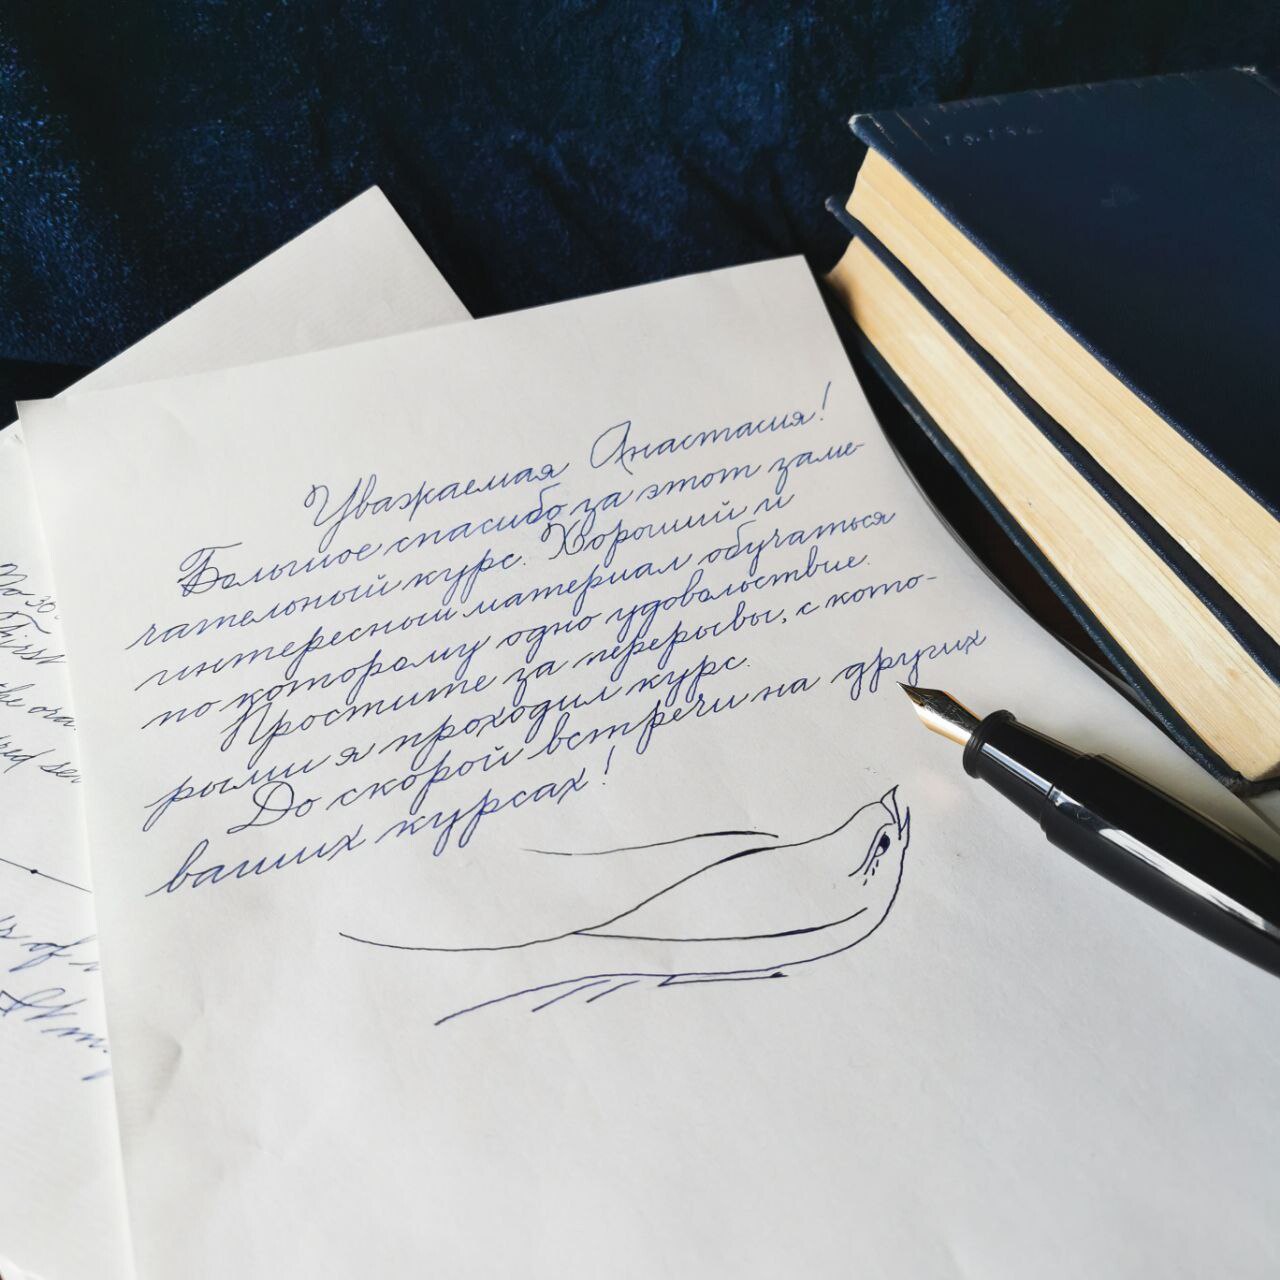 Уважаемая Анастасия!
Большое спасибо за этот заме-
чательный курс. Хороший и
интересный материал обучаться
по которому одно удовольствие.
Простите за перерывы, с кото-
рыми я проходил курс.
До скорой встречи на других
ваших курсах!
First
the
of